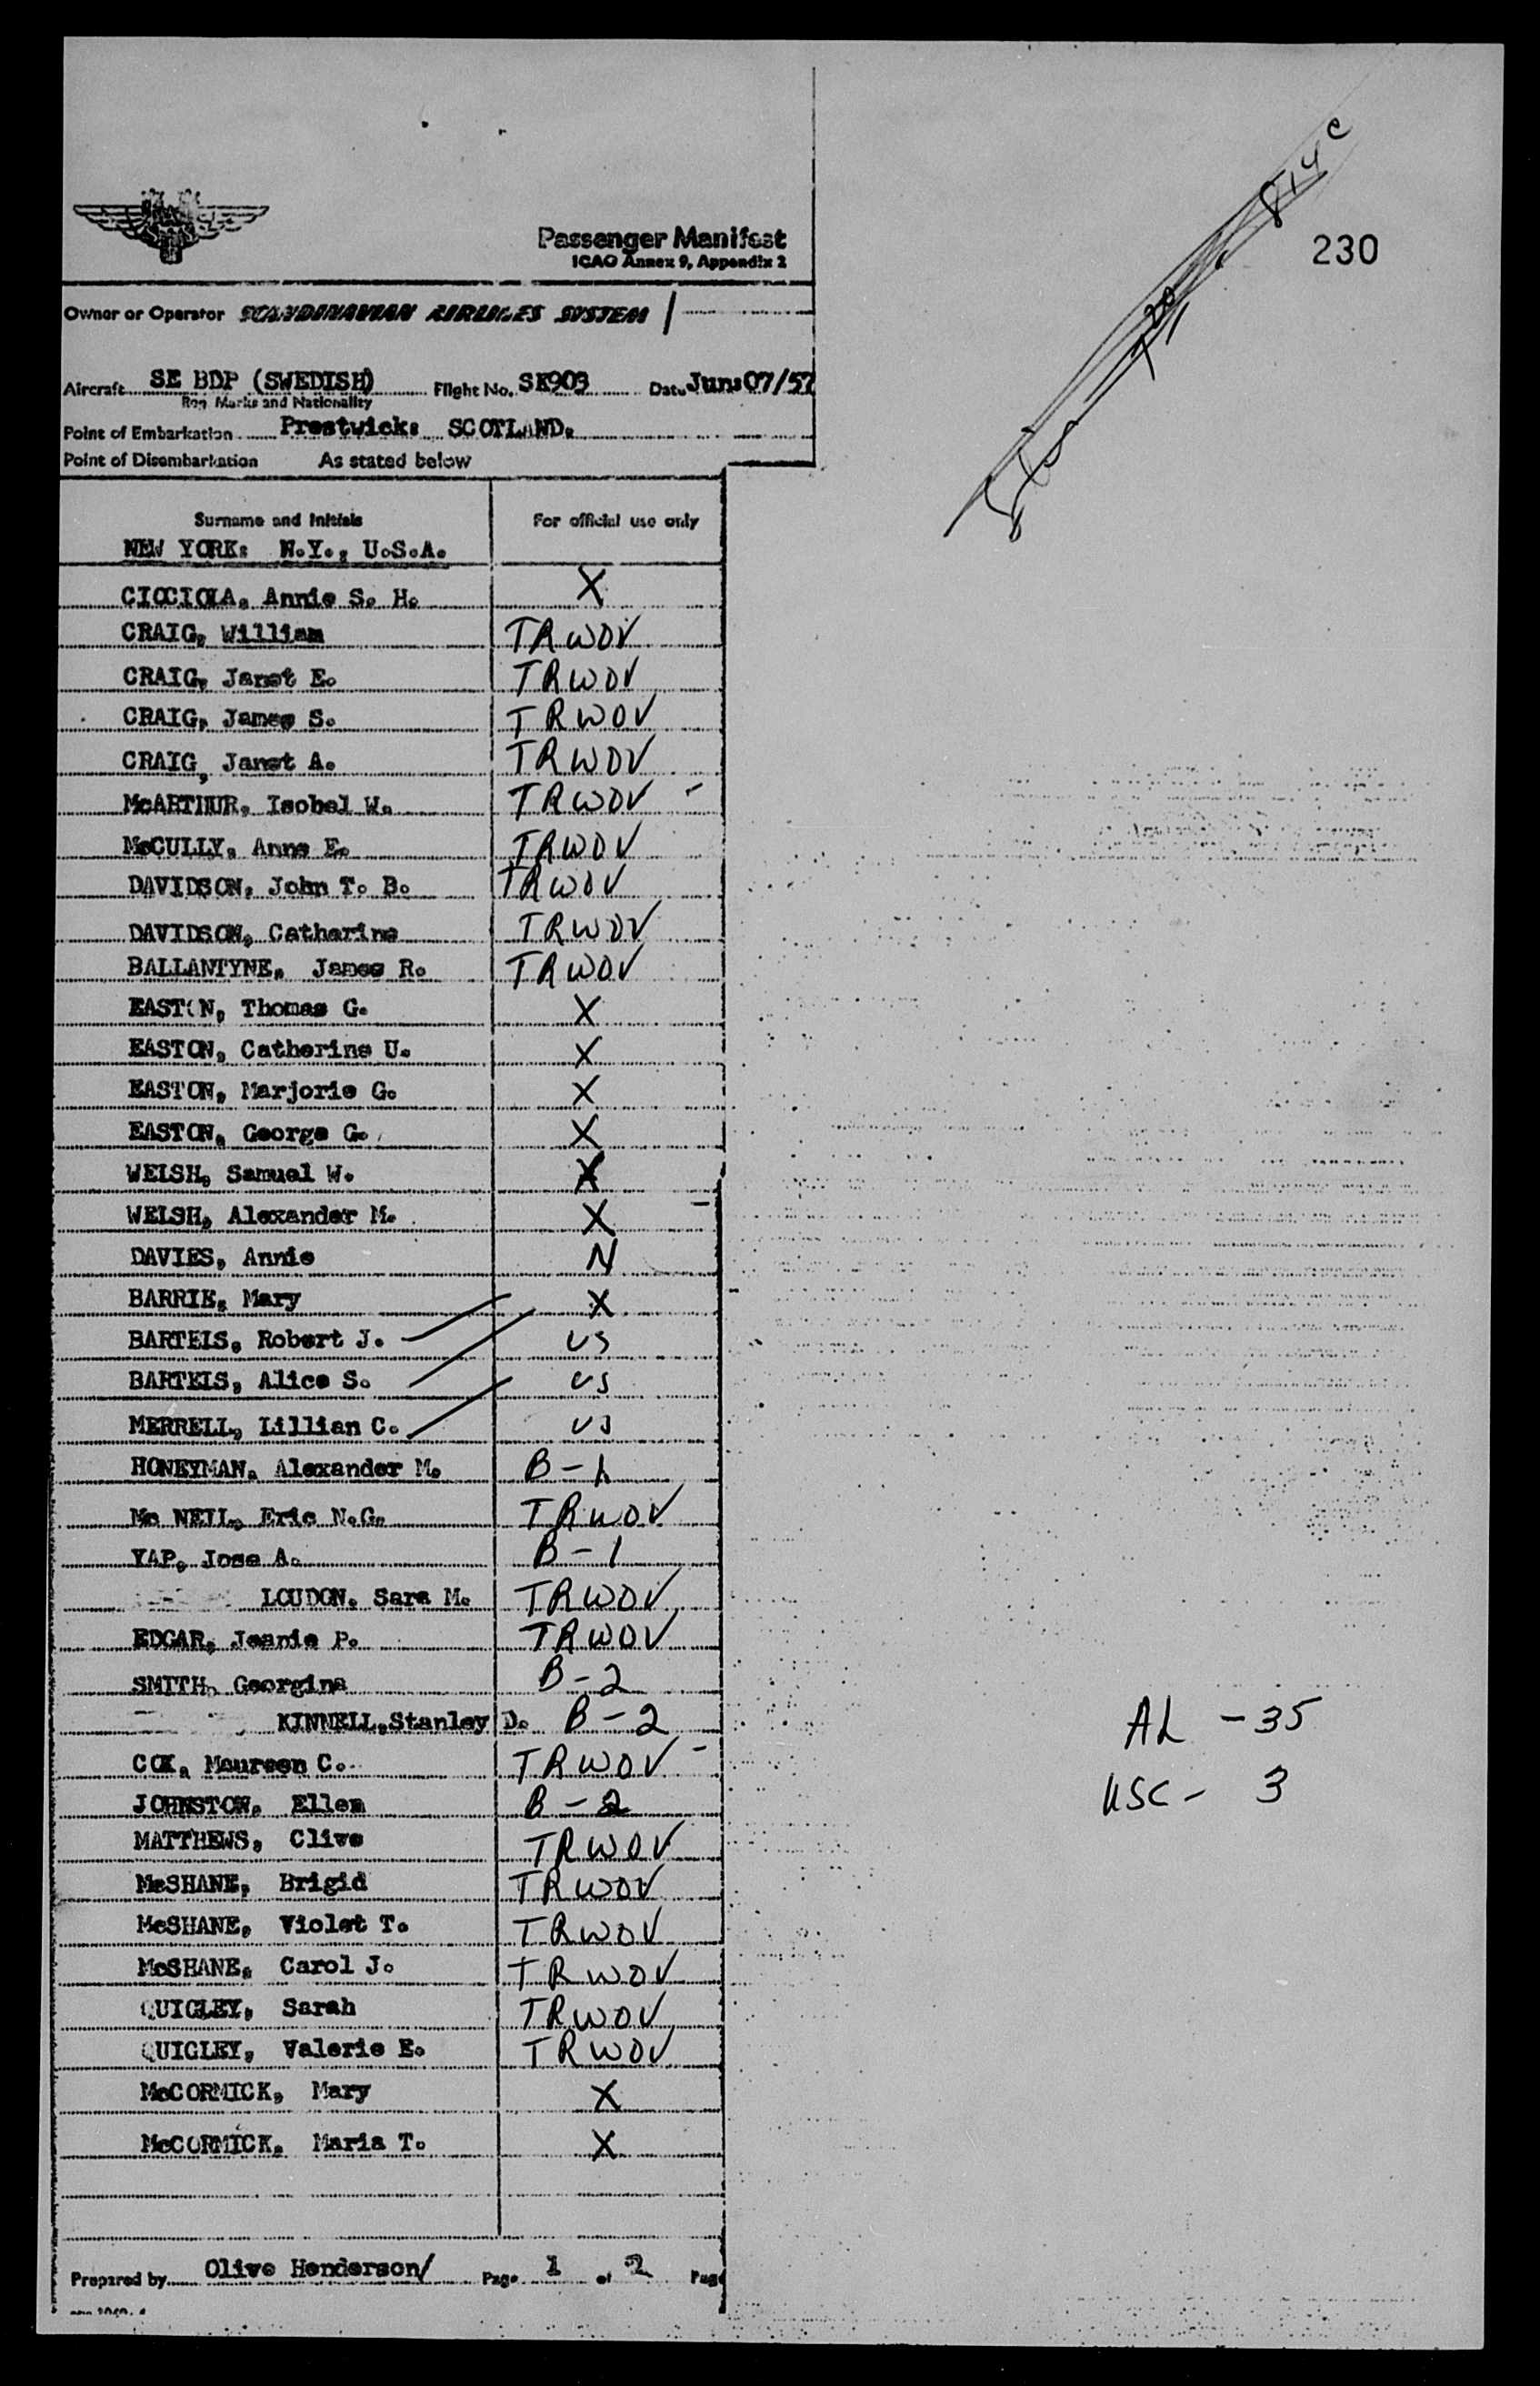 230
Passenger Manifest
ICAO Annex 9, Appendix 2
Owner or Operator SCANDINAVIAN AIRLINES SYSTEM
Aircraft SE BDP (SWEDISH) Flight No. SK903 Date June07/57
Reg Marks and Nationality
Point of Embarkation Prestwick: SCOTLAND.
Point of Disembarkation As stated below
Surname and Initials For official use only
NEW YORK: N.Y., U.S.A.
CICCIOLA, Annie S. H. X
CRAIG, William TRWOV
CRAIG, Janet E. TRWOV
CRAIG, James S. TRWOV
CRAIG, Janet A. TRWOV
McARTHUR, Isobel W. TRWOV
McCULLY, Anne E. TRWOV
DAVIDSON, John T. B. TRWOV
DAVIDSON, Catherine TRWOV
BALLANTYNE, James R. TRWOV
EASTON, Thomas G. X
EASTON, Catherine U. X
EASTON, Marjorie G. X
EASTON, George G. X
WELSH, Samuel W. X
WELSH, Alexander M. X
DAVIES, Annie N
BARRIE, Mary X
BARTELS, Robert J. US
BARTELS, Alice S. US
MERRELL, Lillian C. US
HONEYMAN, Alexander M. B-1
Mc NEIL, Eric N.G. TRWOV
YAP, Jose A. B-1
LOUDON, Sara M. TRWOV
EDGAR, Jeanie P. TRWOV
SMITH, Georgina B-2
KINNELL, Stanley D. B-2
COX, Maureen C. TRWOV
JOHNSTON, Ellen B-2
MATTHEWS, Clive TRWOV
McSHANE, Brigid TRWOV
McSHANE, Violet T. TRWOV
McSHANE, Carol J. TRWOV
QUIGLEY, Sarah TRWOV
QUIGLEY, Valerie E. TRWOV
McCORMICK, Mary X
McCORMICK, Maria T. X
AL - 35
USC - 3
Prepared by Olive Henderson/ Page 1 of 2 Page